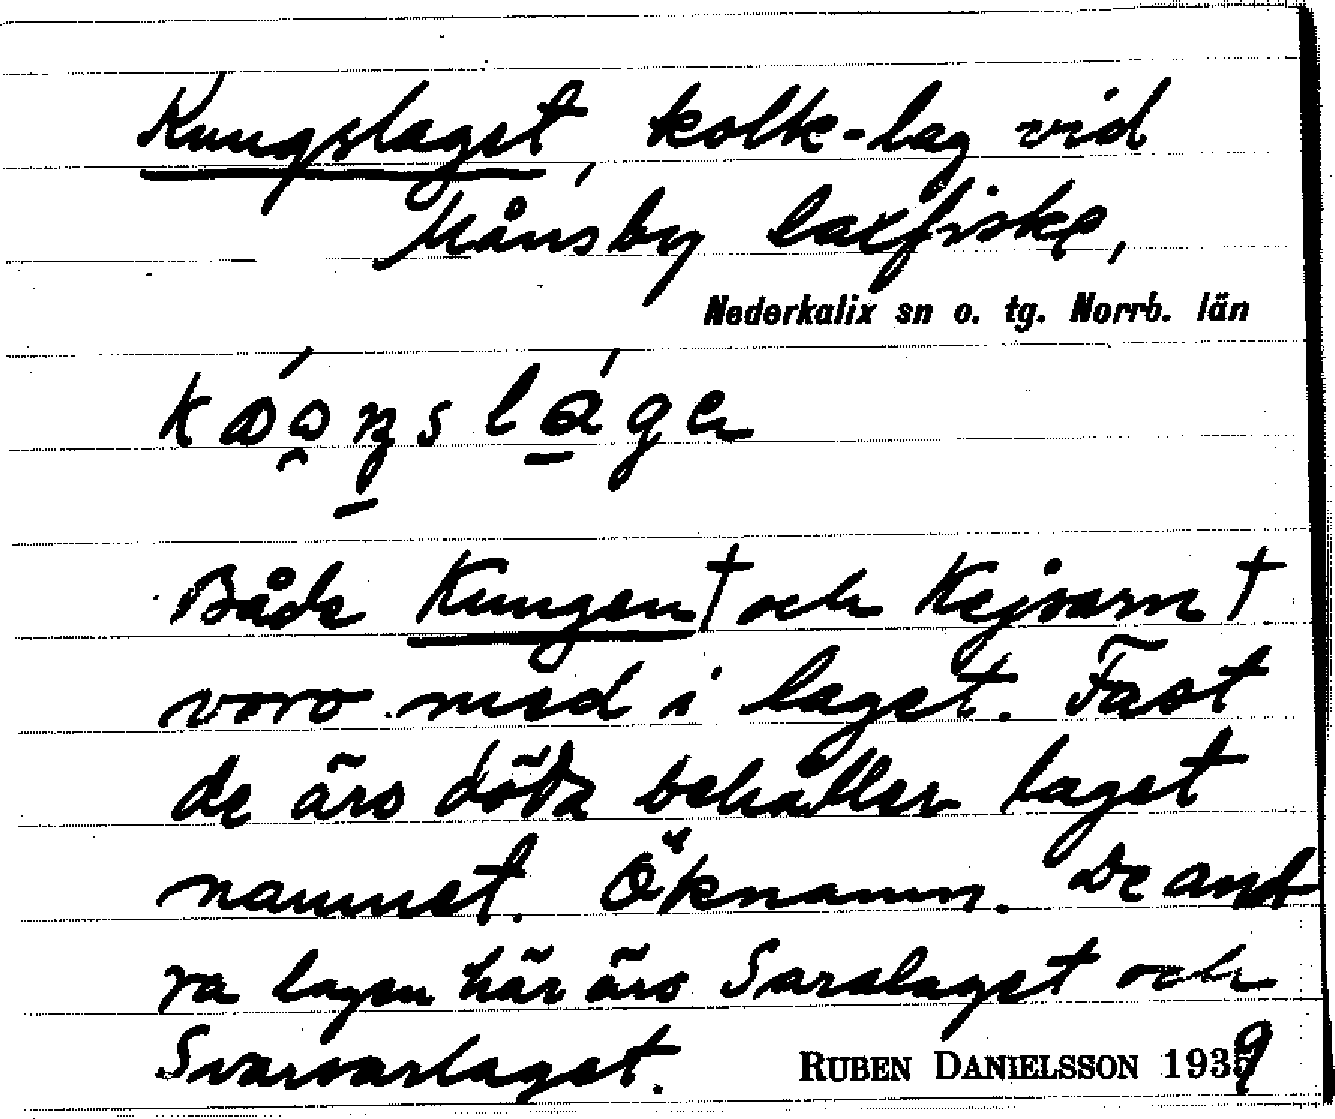 Kungslaget, kolk-lag vid
Månsby laxfiske,
Nederkalix sn o. tg. Norrb. län
Både Kungen† och Kejsarn†
voro med i laget. Fast
de äro döda behåller laget
namnet. Öknamn. De and
ra lagen här äro Saralaget och
Svarvarlaget.
RUBEN DANIELSSON 1939